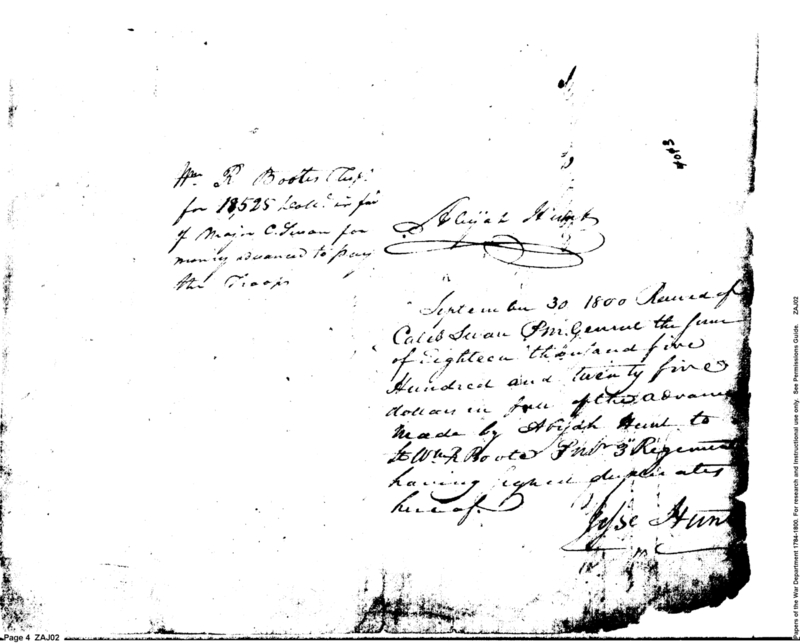 Wm R Bootes
for 18,525 Dolls in full
of Major C. Swan for
money advanced to pay
the Troops
Abijah Hunt
September 30 1800 Received of
Caleb Swan P.M. General the sum
of Eighteen thousand five
Hundred and twenty five
dollars in full of the advance
made by Abijah Hunt to
Lt Wm R Boote P Mr 3d Regiment
having signed duplicates
hereof.
Jesse Hunt
Page 4 ZAJ02
pers of the War Department 1784-1800. For research and instructional use only. See Permissions Guide. ZAJ02